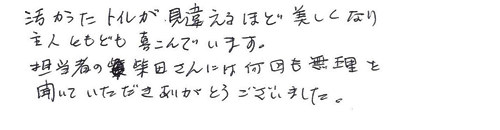 活かったトイレが見違えるほど美しくなり
主人ともども喜こんでいます。
担当者の柴田さんには何回も無理を
聞いていただきありがとうございました。